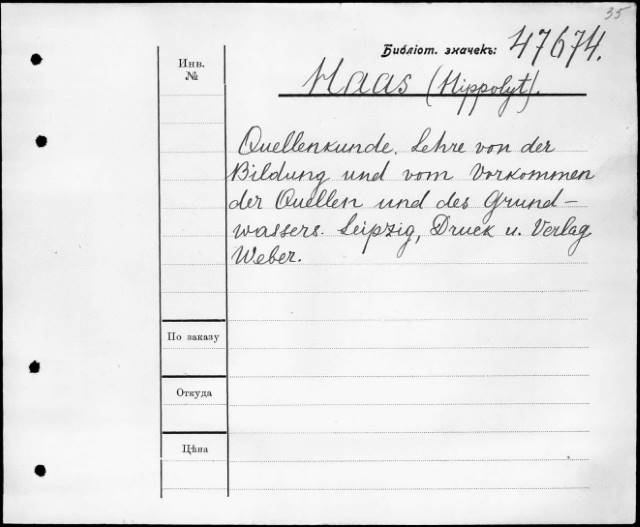 35
Библіот. значекъ: 47674.
Инв.
№
Haas (Hippolyt).
Quellenkunde. Lehre von der
Bildung und vom Vorkommen
der Quellen und des Grund-
wassers. Leipzig, Druck u. Verlag
Weber.
По заказу
Откуда
Цѣна